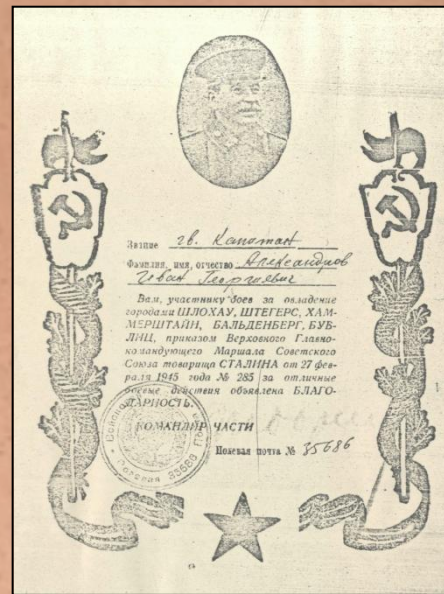 Звание гв. Капитан
Фамилия, имя, отчество Александров
Иван Георгиевич
Вам, участнику боев за овладение
городами ШЛОХАУ, ШТЕГЕРС, ХАМ-
МЕРШТАЙН, БАЛЬДЕНБЕРГ, БУБ-
ЛИЦ, приказом Верховного Главно-
командующего Маршала Советского
Союза товарища СТАЛИНА от 27 фев-
раля 1945 года № 285 за отличные
боевые действия объявлена БЛАГО-
ДАРНОСТЬ.
КОМАНДИР ЧАСТИ
Полевая почта № 35686
Полевая 35686